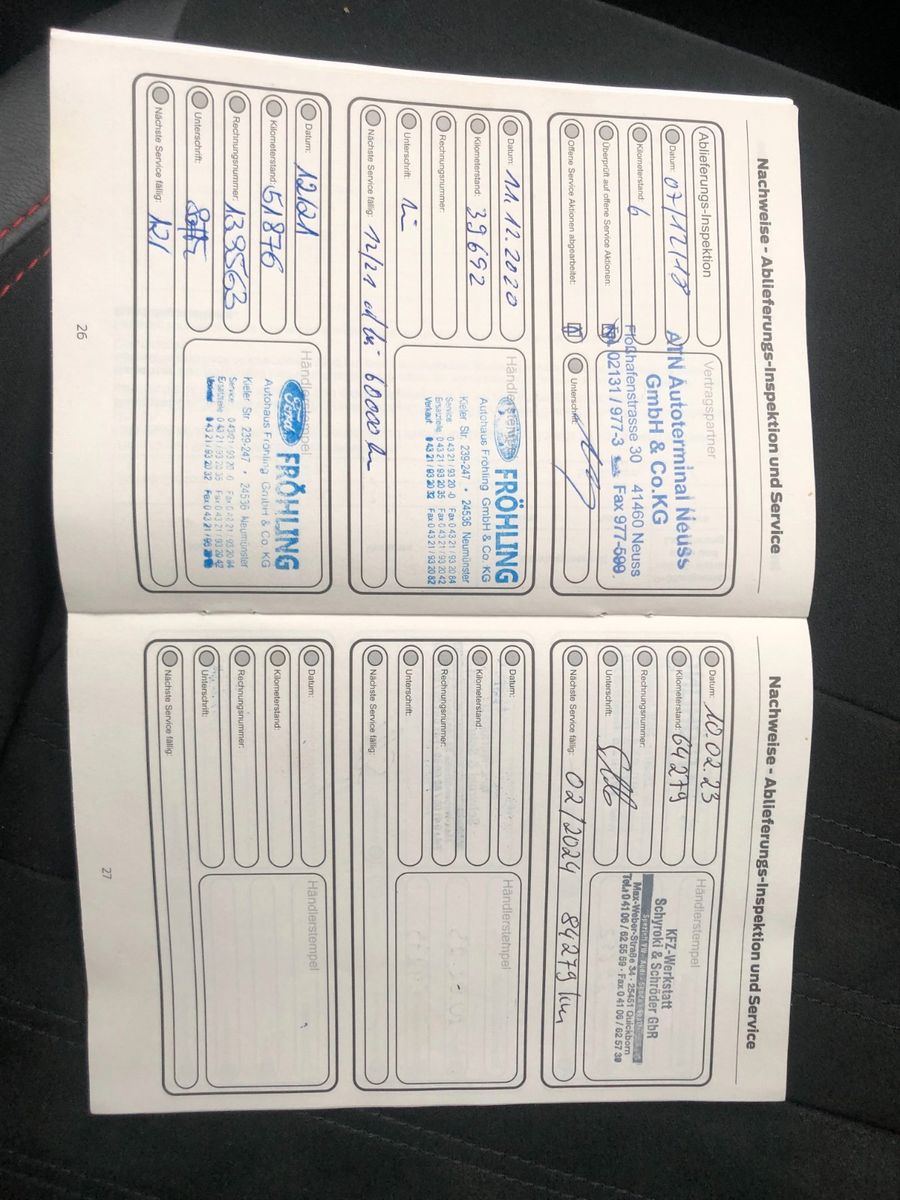 Nachweise - Ablieferungs-Inspektion und Service
Ablieferungs-Inspektion
Datum: 07/12/18
Kilometerstand: 6
Überprüft auf offene Service Aktionen:
Offene Service Aktionen abgearbeitet:
Vertragspartner
ATN Autoterminal Neuss
GmbH & Co.KG
Floßhafenstrasse 30 41460 Neuss
02131 / 977-3 Fax 977-599
Unterschrift:
Datum: 11.12.2020
Kilometerstand: 39692
Rechnungsnummer:
Unterschrift:
Nächste Service fällig: 12/21 60000 km
Händlerstempel
Ford FRÖHLING
Autohaus Fröhling GmbH & Co. KG
Kieler Str. 239-247 • 24536 Neumünster
Service 0 43 21 / 93 20 -0 Fax 0 43 21 / 93 20 84
Ersatzteile 0 43 21 / 93 20 35 Fax 0 43 21 / 93 20 42
Verkauf 0 43 21 / 93 20 32 Fax 0 43 21 / 93 20 82
Datum: 12/21
Kilometerstand: 51876
Rechnungsnummer: 139563
Unterschrift:
Nächste Service fällig:
Händlerstempel
Ford FRÖHLING
Autohaus Fröhling GmbH & Co. KG
Kieler Str. 239-247 • 24536 Neumünster
Service 0 43 21 / 93 20 -0 Fax 0 43 21 / 93 20 84
Ersatzteile 0 43 21 / 93 20 35 Fax 0 43 21 / 93 20 42
0 43 21 / 93 20 32 Fax 0 43 21 / 93
26
Nachweise - Ablieferungs-Inspektion und Service
Datum: 10.02.23
Kilometerstand: 64279
Rechnungsnummer:
Unterschrift:
Nächste Service fällig: 02/2024 84279 km
Händlerstempel
KFZ-Werkstatt
Schyroki & Schröder GbR
Max-Weber-Straße 34 · 25451 Quickborn
Tel. 0 41 06 / 62 55 59 · Fax 0 41 06 / 62 57 39
Datum:
Kilometerstand:
Rechnungsnummer:
Unterschrift:
Nächste Service fällig:
Händlerstempel
Datum:
Kilometerstand:
Rechnungsnummer:
Unterschrift:
Nächste Service fällig:
Händlerstempel
27